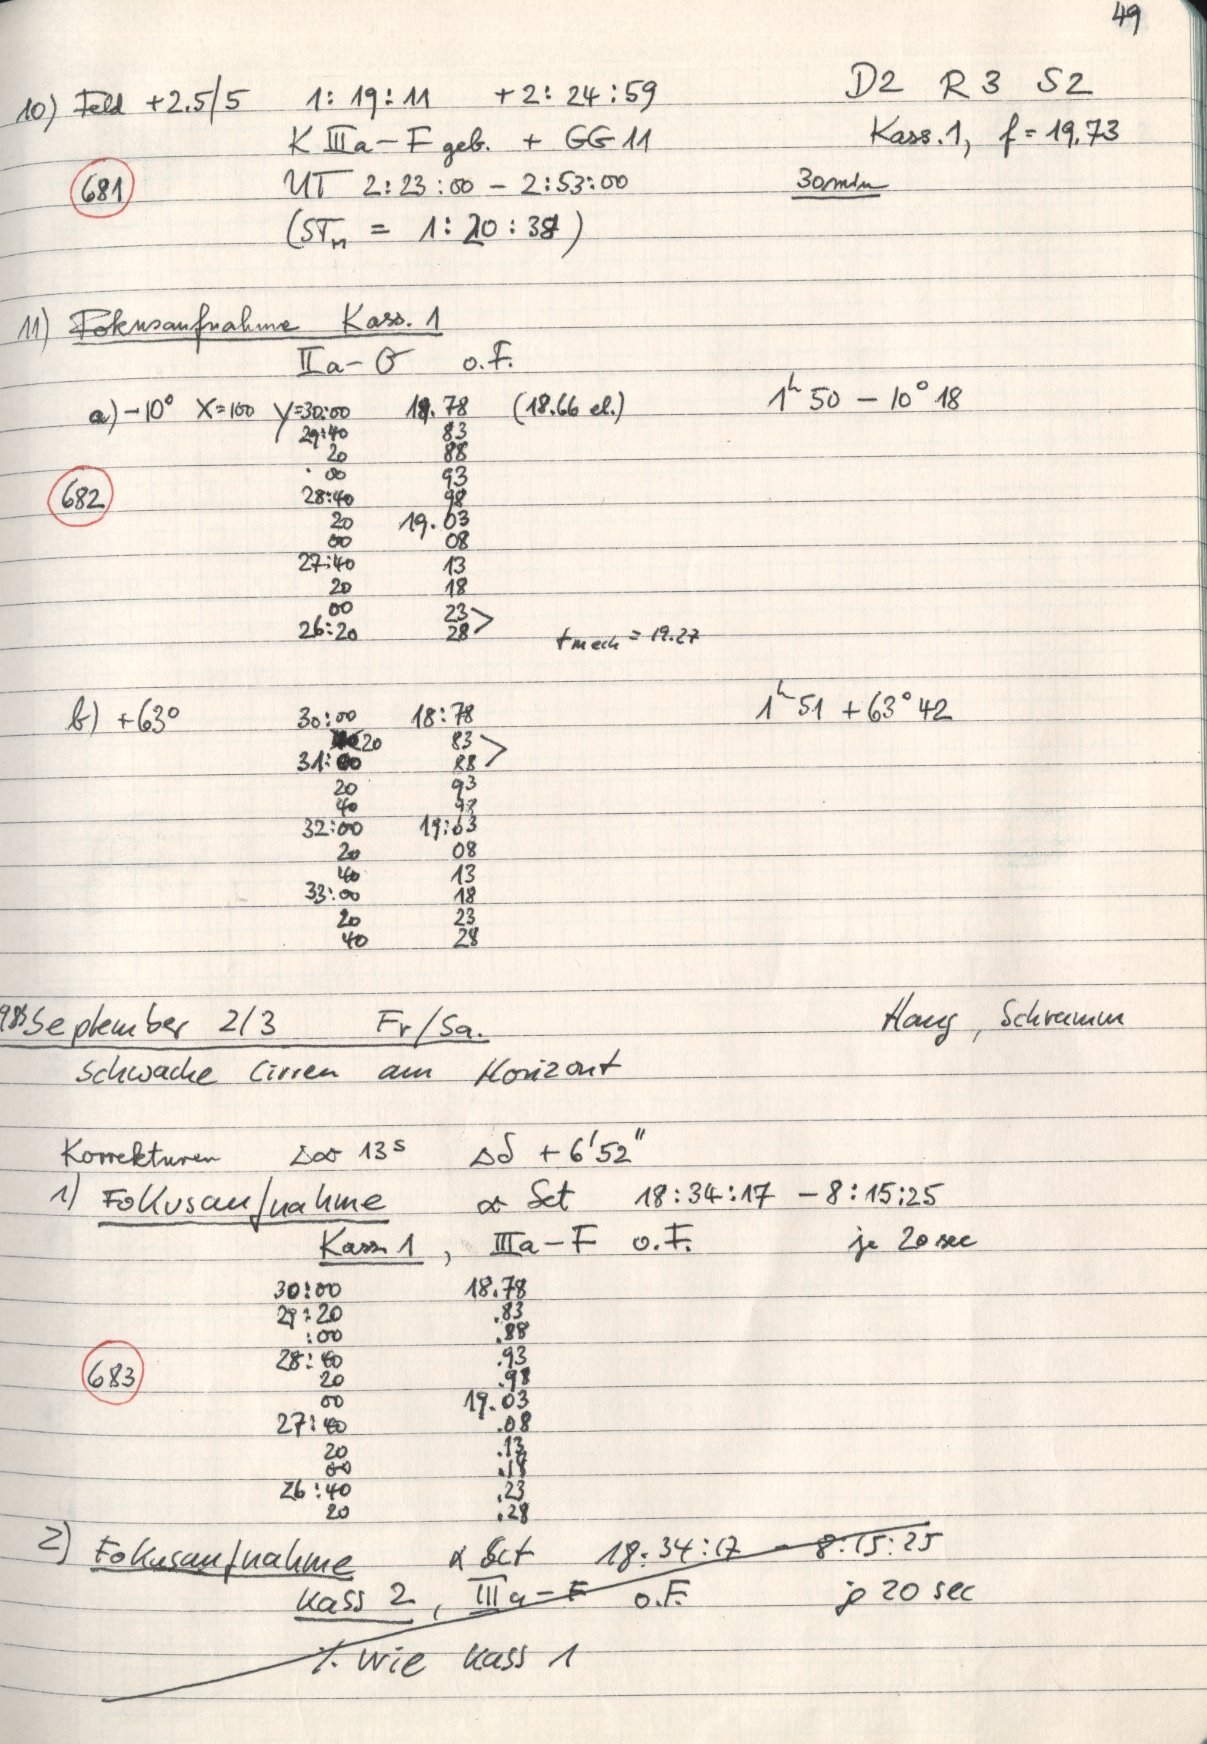 49
10) Feld +2.5/5 1:19:11 +2:24:59 D2 R3 S2
K IIIa-F geb. + GG11 Kass.1, f=19.73
681 UT 2:23:00 - 2:53:00 30min
(STm = 1:20:38)
11) Fokusaufnahme Kass. 1
IIa-O o.F.
a) -10° X=100 Y=30:00 18.78 (18.66 el.) 1h 50 -10° 18
29:40 83
20 88
00 93
682 28:40 98
20 19.03
00 08
27:40 13
20 18
00 23
26:20 28 > fmech = 19.27
b) +63° 30:00 18:78 1h 51 +63° 42
20 83
31:00 88 >
20 93
40 98
32:00 19:03
20 08
40 13
33:00 18
20 23
40 28
September 2/3 Fr/Sa. Haug, Schramm
Schwache Cirren am Horizont
Korrekturen Δα 13s Δδ +6'52"
1) Fokusaufnahme α Sct 18:34:17 -8:15:25
Kass 1, IIIa-F o.F. je 20 sec
30:00 18.78
29:20 .83
:00 .88
683 28:40 .93
20 .98
00 19.03
27:40 .08
20 .13
00 .18
26:40 .23
20 .28
2) Fokusaufnahme α Sct 18:34:17 -8:15:25
Kass 2, IIIa-F o.F. je 20 sec
./. wie Kass 1